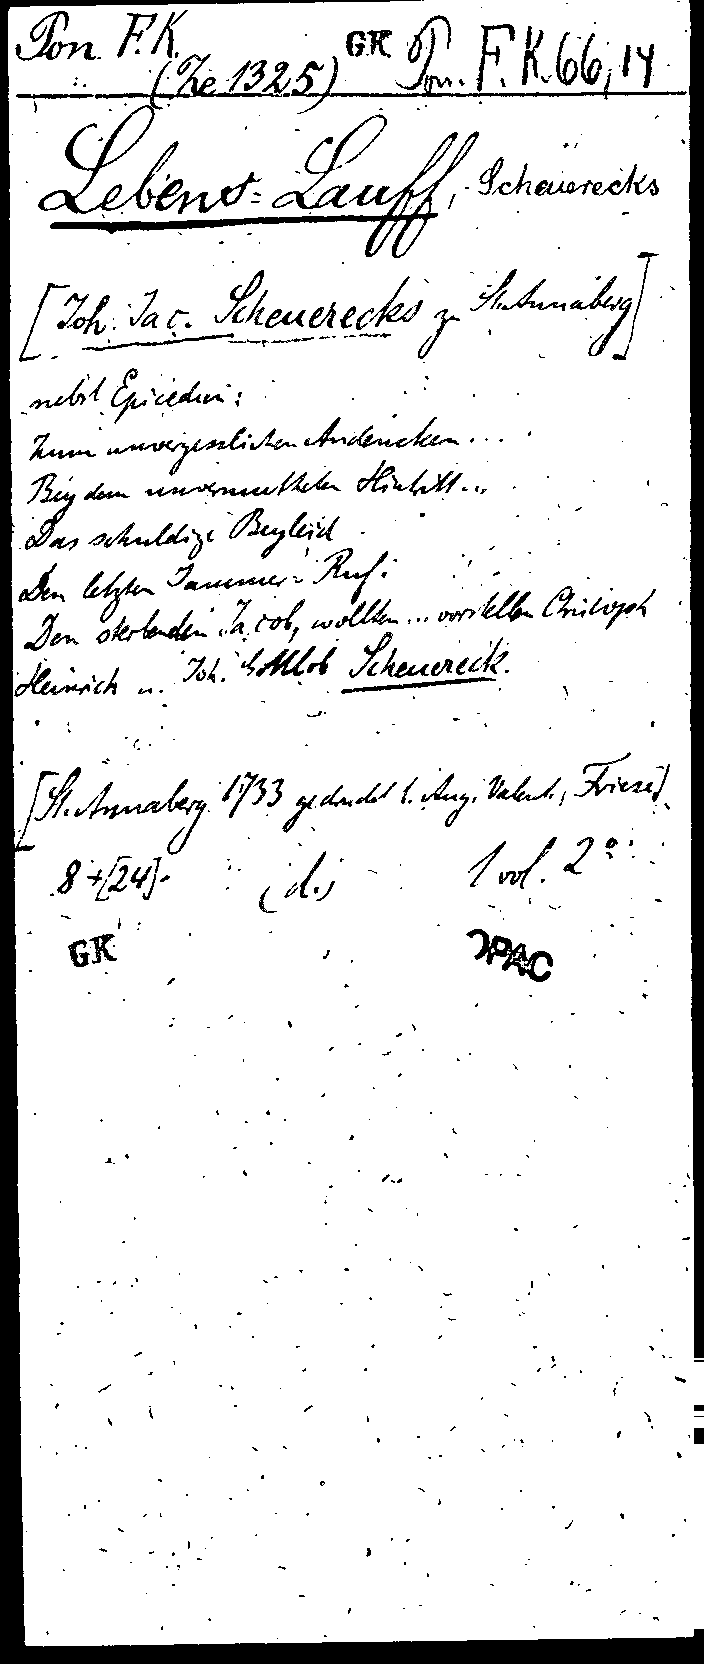 Pon F.K.
(Ze 1325) GK Pon. F. K. 66, 14
Lebens-Lauff, Scheuerecks
[Joh. Jac. Scheuerecks zu St. Annaberg]
nebst Epicedien:
Zum unvergesslichen Andencken...
Bey dem unvermutheten Hintritt...
Das schuldige Beyleid
Den letzten Jammer-Ruf:
Den sterbenden Jacob, wollten... vorstellen Christoph
Heinrich u. Joh. Gottlob Scheuereck.
[St. Annaberg 1733 gedruckt b. Aug. Valent. Friese]
8 + [24]. (d.) 1 vol. 2°
GK OPAC